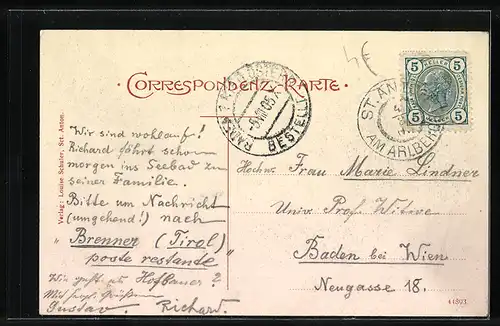 4€
CORRESPONDENZ-KARTE.
5 5
5 5
BADEN
BESTELLT
5.VIII.05.X
ST. ANTON
AM ARLBERG
Wir sind wohlauf!
Richard fährt schon
morgen ins Seebad zu
seiner Familie.
Bitte um Nachricht
(umgehend!) nach
"Brenner (Tirol)
poste restante"
Wie geht es Hofbauer?
Mit Grüßen
Gustav. Richard.
Hochw. Frau Marie Lindner
Univ. Prof. Witwe
Baden bei Wien
Neugasse 18.
Verlag: Louise Schuler, Sct. Anton.
44893